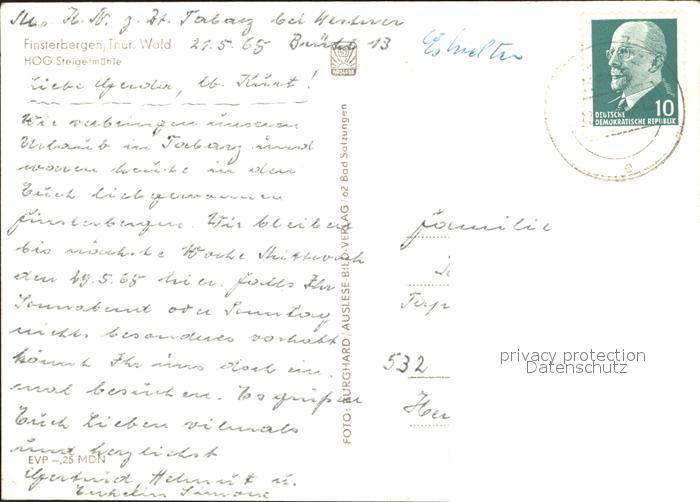 z. Zt. Tabarz bei
Finsterbergen, Thür. Wald 21.5.65 13
HOG Steigermühle
Liebe Gerda, lb. Kurt!
Wir verbringen unseren
Urlaub in Tabarz und
waren heute in dem
Euch liebgewonnenen
Finsterbergen. Wir bleiben
bis nächste Woche Mittwoch
den 29.5.65 hier. Falls Ihr
Sonnabend oder Sonntag
nichts besonderes vorhabt
könnt Ihr uns doch ein-
mal besuchen. Es grüßen
Euch Lieben vielmals
und herzlichst
EVP -,25 MDN
Gertrud, Helmut u.
Enkelin Simone
FOTO: BURGHARD / AUSLESE-BILD-VERLAG / 62 Bad Salzungen
AUSLESE
10
DEUTSCHE
DEMOKRATISCHE REPUBLIK
e
Familie
532
privacy protection
Datenschutz